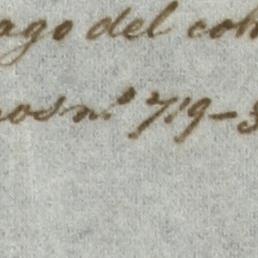 ago del co
os n.º 719-3